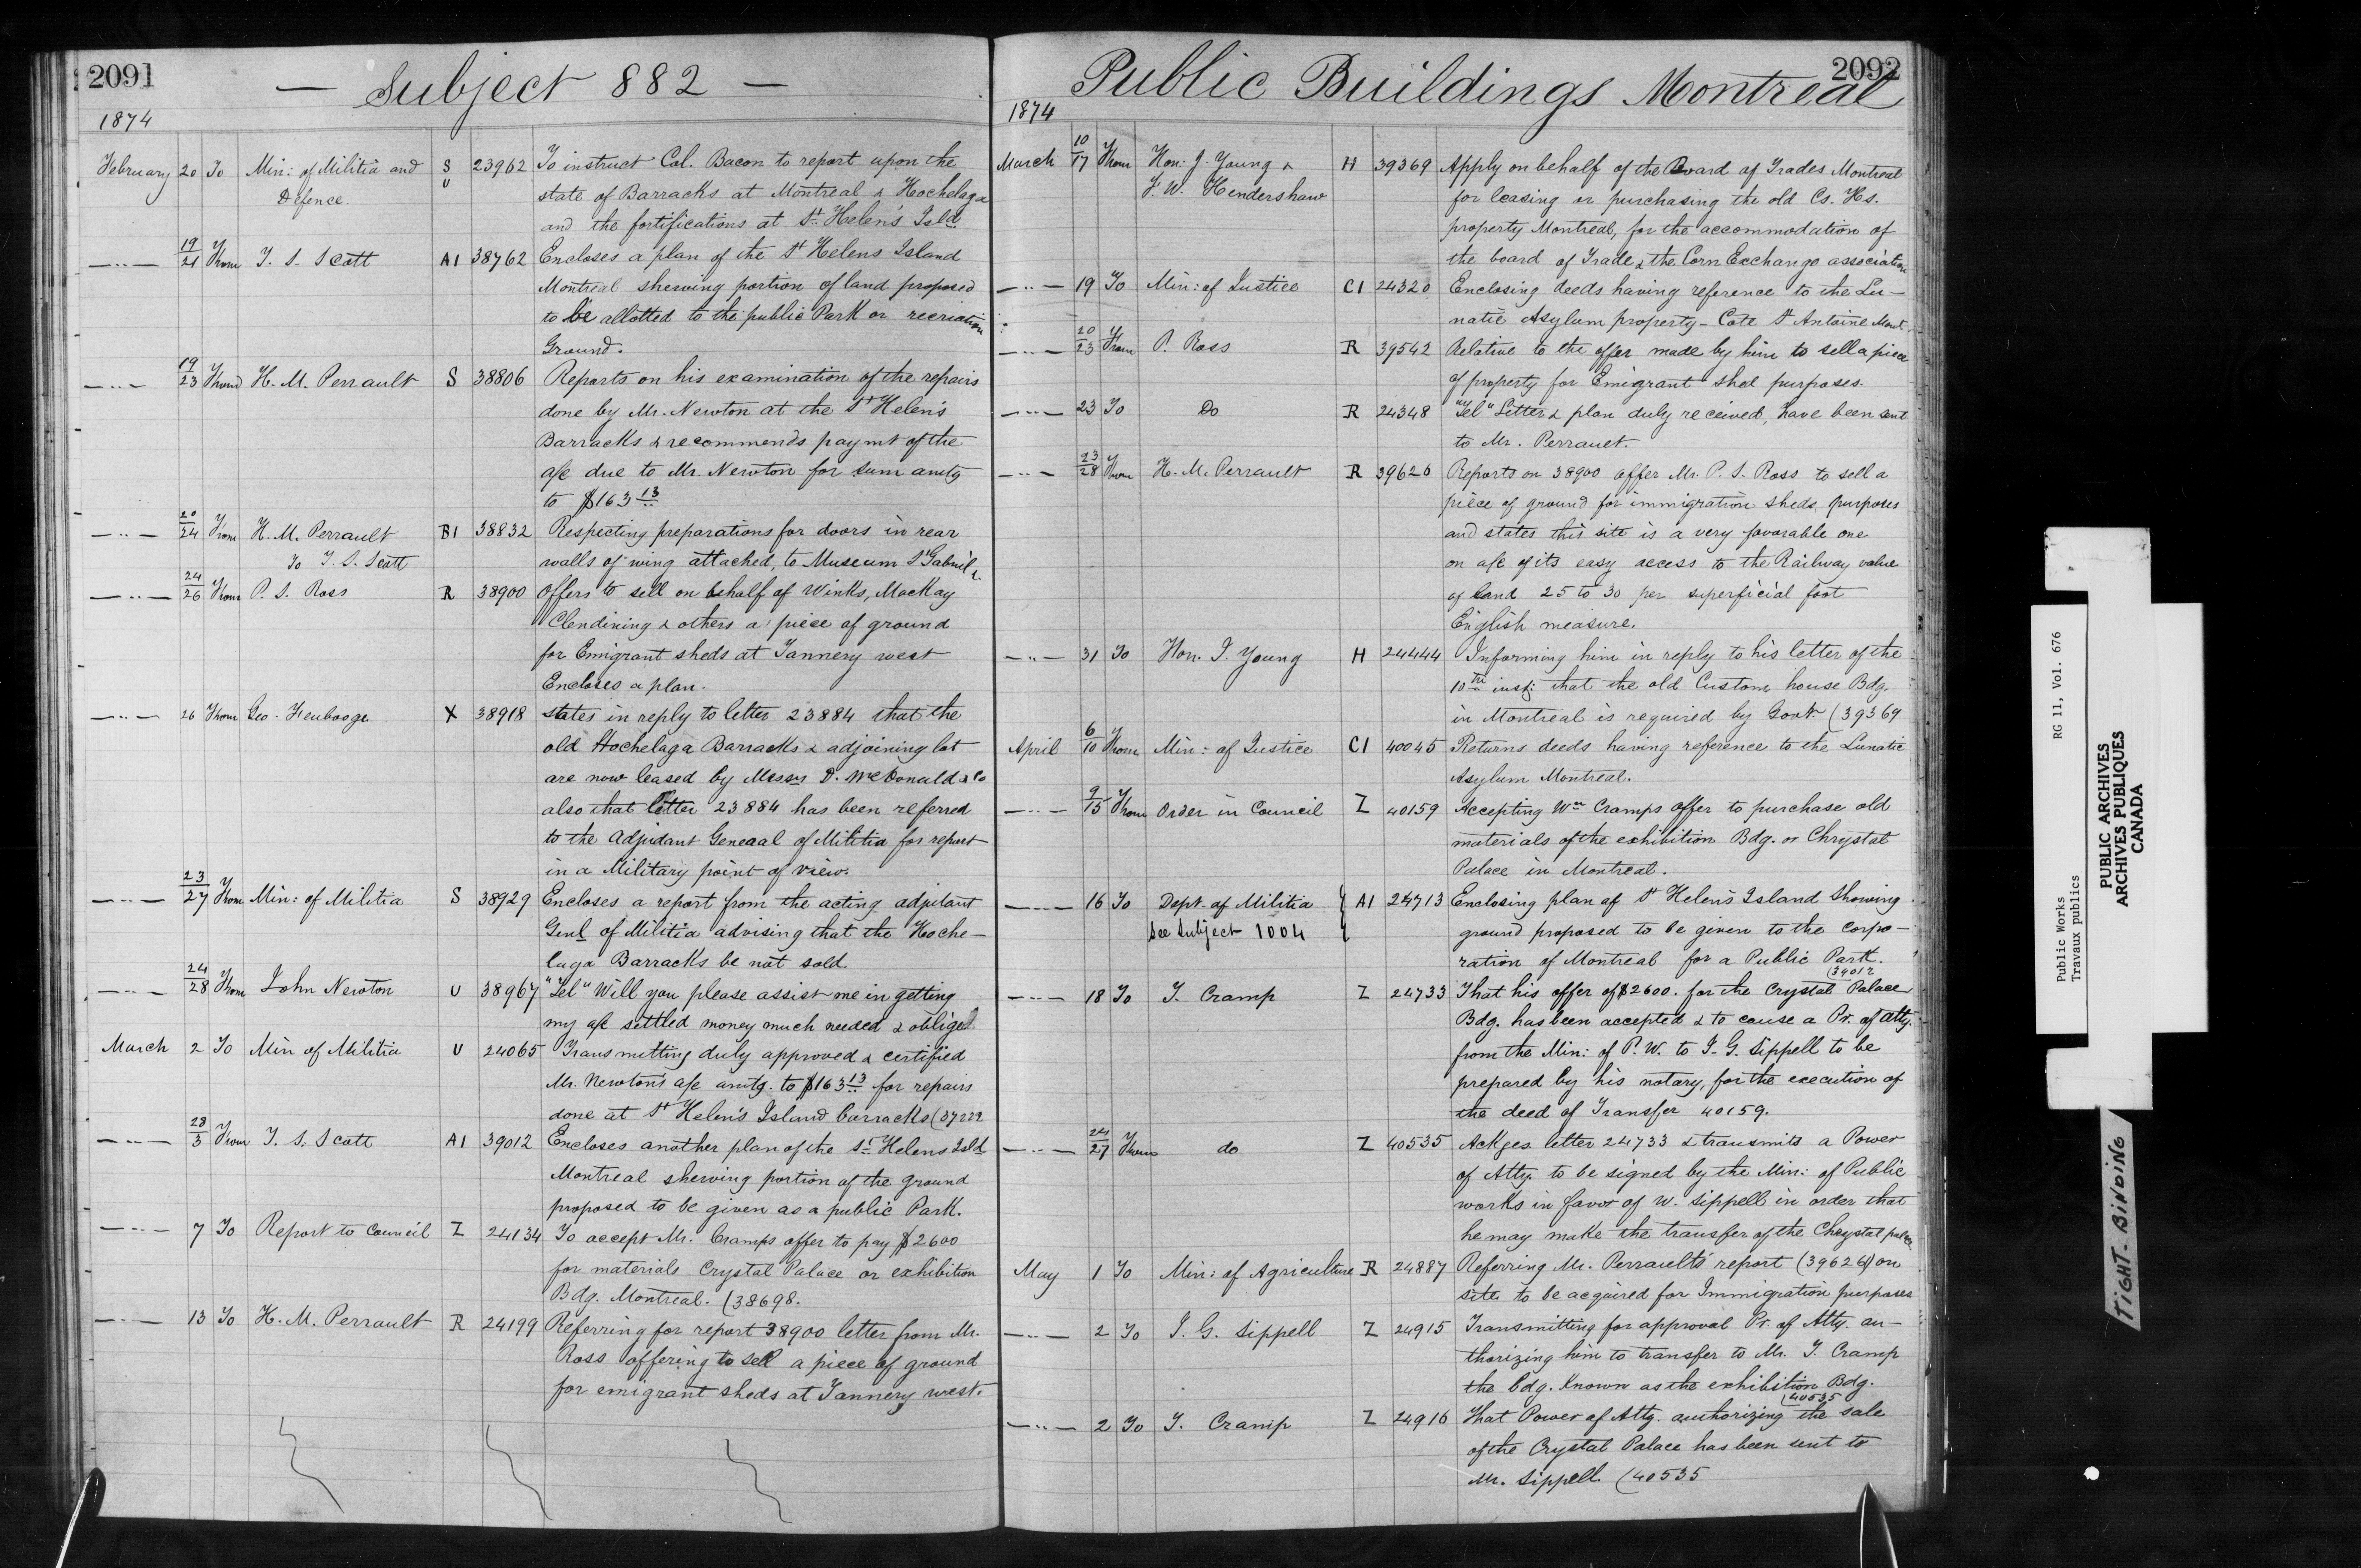 2091
— Subject 882 —
1874
February 20 To Min: of Militia and S 23962 To instruct Col. Bacon to report upon the
Defence. U state of Barracks at Montreal & Hochelaga
and the fortifications at St. Helen's Isld
—"— 19/21 From T. S. Scott A1 38762 Encloses a plan of the St Helens Island
Montreal shewing portion of land proposed
to be allotted to the public Park or recreation
Ground.
—"— 19/23 From H. M. Perrault S 38806 Reports on his examination of the repairs
done by Mr. Newton at the St Helen's
Barracks & recommends paymt of the
a/c due to Mr. Newton for sum amtg
to $163 13
—"— 20/24 From H. M. Perrault B1 38832 Respecting preparations for doors in rear
To T. S. Scott walls of wing attached, to Museum St Gabriel
—"— 24/26 From P. S. Ross R 38900 Offers to sell on behalf of Winks, MacKay
Clendining & others a piece of ground
for Emigrant sheds at Tannery west
Encloses a plan.
—"— 26 From Geo. X 38918 states in reply to letter 23884 that the
old Hochelaga Barracks & adjoining lot
are now leased by Messrs D. McDonald & Co
also that letter 23884 has been referred
to the Adjudant General of Militia for report
in a Military point of view.
—"— 23/27 From Min: of Militia S 38929 Encloses a report from the acting adjutant
Genl of Militia advising that the Hoche-
laga Barracks be not sold.
—"— 24/28 From John Newton U 38967 "Tel" Will you please assist me in getting
my a/c settled money much needed & obliged
March 2 To Min of Militia U 24065 Transmitting duly approved & certified
Mr. Newton's a/c amtg. to $163 13 for repairs
done at St Helen's Island barracks (37222
—"— 28/3 From T. S. Scott A1 39012 Encloses another plan of the St. Helens Isld
Montreal shewing portion of the ground
proposed to be given as a public Park.
—"— 7 To Report to Council Z 24134 To accept Mr. Cramps offer to pay $2600
for materials Crystal Palace or exhibition
Bdg. Montreal. (38698.
—"— 13 To H. M. Perrault R 24199 Referring for report 38900 letter from Mr.
Ross offering to sell a piece of ground
for emigrant sheds at Tannery west.
2092
Public Buildings Montreal
1874
March 10/17 From Hon. J. Young & H 39369 Apply on behalf of the Board of Trades Montreal
F. W. Hendershaw for leasing or purchasing the old Cs. Hs.
property Montreal, for the accommodation of
the board of Trade & the Corn Exchange association
—"— 19 To Min: of Justice C1 24320 Enclosing deeds having reference to the Lu-
natic Asylum property - Cote St Antoine Mont.
—"— 20/23 From P. Ross R 39542 Relative to the offer made by him to sell a piece
of property for Emigrant shed purposes.
—"— 23 To Do R 24348 "Tel" Letter & plan duly received, have been sent
to Mr. Perrauet.
—"— 23/28 From H. M. Perrault R 39626 Reports on 38900 offer Mr. P. S. Ross to sell a
piece of ground for immigration sheds, purposes
and states this site is a very favorable one
on a/c of its easy access to the Railway value
of land 25 to 30 per superficial foot
English measure.
—"— 31 To Hon. J. Young H 24444 Informing him in reply to his letter of the
10th inst: that the old Custom house Bdg.
in Montreal is required by Govt. (39369
April 6/10 From Min: of Justice C1 40045 Returns deeds having reference to the Lunatic
Asylum Montreal.
—"— 9/15 From Order in Council Z 40159 Accepting Wm Cramps offer to purchase old
materials of the exhibition Bdg. or Chrystal
Palace in Montreal.
—"— 16 To Dept. of Militia A1 24713 Enclosing plan of St Helen's Island Showing
See Subject 1004 ground proposed to be given to the Corpo-
ration of Montreal for a Public Park.
(39012
—"— 18 To T. Cramp Z 24733 That his offer of $2600. for the Crystal Palace
Bdg. has been accepted & to cause a Pr. of Atty.
from the Min: of P. W. to J. G. Sippell to be
prepared by his notary, for the execution of
the deed of Transfer 40159.
—"— 24/27 From do Z 40535 Ackges letter 24733 & transmits a Power
of Atty. to be signed by the Min: of Public
works in favor of W. Sippell in order that
he may make the transfer of the Chrystal palace
May 1 To Min: of Agriculture R 24887 Referring Mr. Perrault's report (39626) on
site to be acquired for Immigration purposes
—"— 2 To J. G. Sippell Z 24915 Transmitting for approval Pr. of Atty. au-
thorizing him to transfer to Mr. T. Cramp
the bdg. Known as the exhibition Bdg.
(40535
—"— 2 To T. Cramp Z 24916 That Power of Atty. authorizing the sale
of the Crystal Palace has been sent to
Mr. Sippell (40535
RG 11, Vol. 676
Public Works
Travaux publics
PUBLIC ARCHIVES
ARCHIVES PUBLIQUES
CANADA
TIGHT BINDING